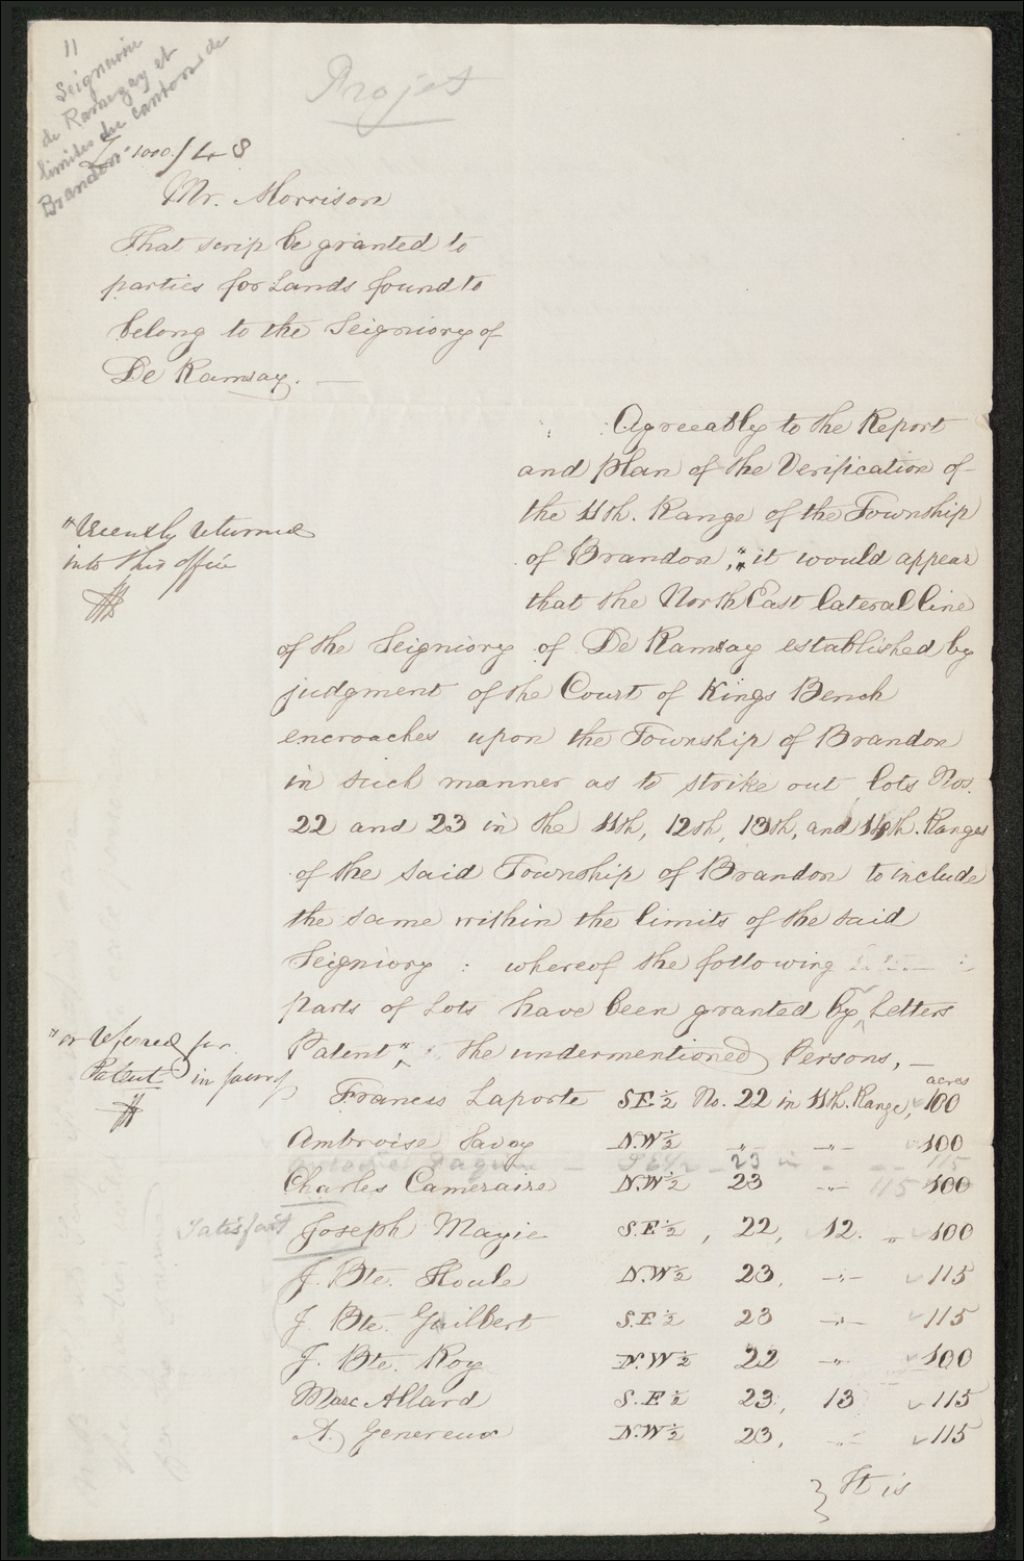 11
Seigneurie
de Ramezay et
limites du cantons de
Brandon
Projet
1000/48
Mr. Morrison
That scrip be granted to
parties for Lands found to
belong to the Seigniory of
De Ramsay. —
Agreeably to the Report
and plan of the Verification of
the 11th. Range of the Township
of Brandon," it would appear
"recently returned
into this office
that the North East lateral line
of the Seigniory of De Ramsay established by
judgment of the Court of Kings Bench
encroaches upon the Township of Brandon
in such manner as to strike out lots Nos.
22 and 23 in the 11th, 12th, 13th, and 14th. Ranges
of the said Township of Brandon to include
the same within the limits of the said
Seigniory : whereof the following
parts of Lots have been granted by Letters
Patent" the undermentioned Persons, —
"or referred for
Patent in favor of
acres
Francis Laporte SE ½ No. 22 in 11th. Range, 100
Ambroise Savoy N.W ½ " " 100
SE ½ 23 in " 115
Charles Cameraire N.W ½ 23 " 115 100
Satisfait Joseph Magie S.E ½, 22, 12. " 100
J. Bte. Houle N.W ½ 23, " 115
J. Bte. Guilbert S.E ½ 23 " 115
J. Bte. Roy N.W ½ 22 " 100
Marc Allard S.E ½ 23, 13 115
A. Genereux N.W ½ 23, " 115
It is